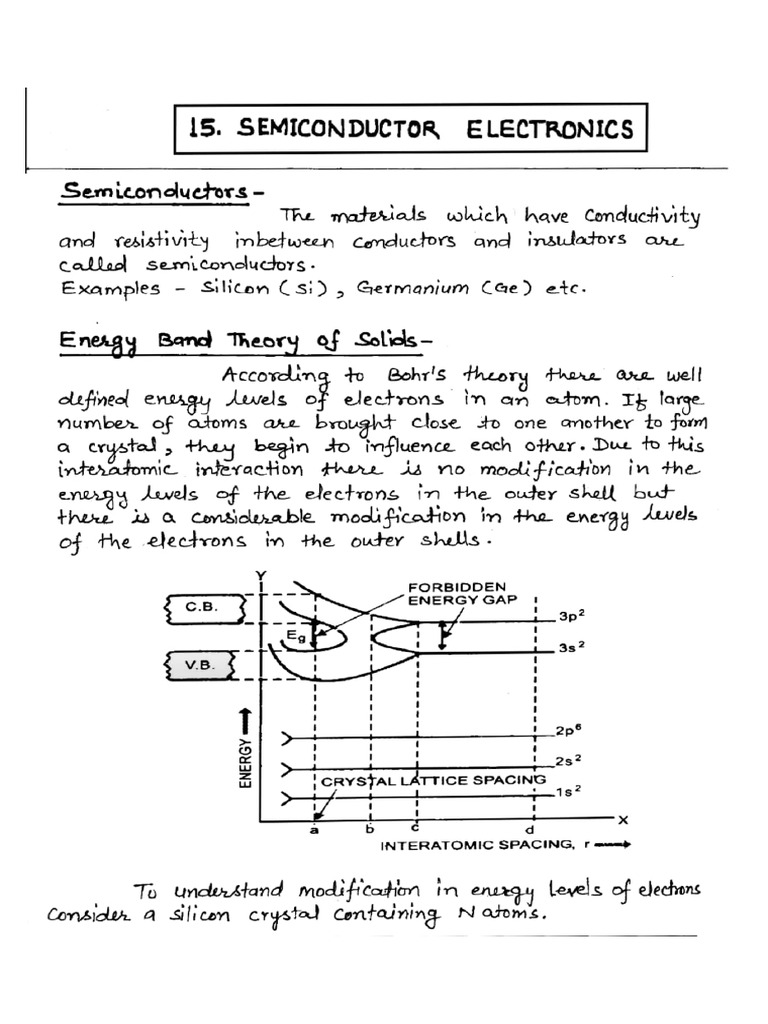 15. SEMICONDUCTOR ELECTRONICS
Semiconductors-
The materials which have conductivity
and resistivity inbetween conductors and insulators are
called semiconductors.
Examples - Silicon (Si), Germanium (Ge) etc.
Energy Band Theory of Solids-
According to Bohr's theory there are well
defined energy levels of electrons in an atom. If large
number of atoms are brought close to one another to form
a crystal, they begin to influence each other. Due to this
interatomic interaction there is no modification in the
energy levels of the electrons in the outer shell but
there is a considerable modification in the energy levels
of the electrons in the outer shells.
Y
FORBIDDEN
ENERGY GAP
C.B.
3p²
Eg
3s²
V.B.
2p⁶
ENERGY
2s²
CRYSTAL LATTICE SPACING
1s²
X
a b c d
INTERATOMIC SPACING, r
To understand modification in energy levels of electrons
Consider a silicon crystal containing N atoms.